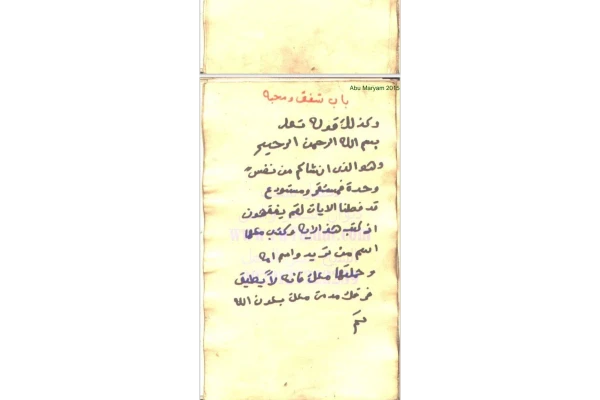 Abu Maryam 2015
باب شفق ومحبه
وكذلك قوله تعلى
بسم الله الرحمن الرحيم
وهو الذى انشاكم من نفس
وحدة فمستقر ومستودع
قد فصلنا الايات لقم يفقهون
اذ كتب هذ الايه وكتب معها
اسم من تريد واسم امه
وحملتها معك فانه لا يطيق
فرقك مدمت معك بعون الله